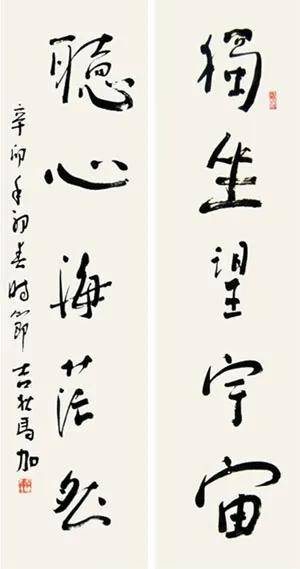 獨坐望宇宙
聽心海茫然
辛卯年初春時節 吉狄馬加